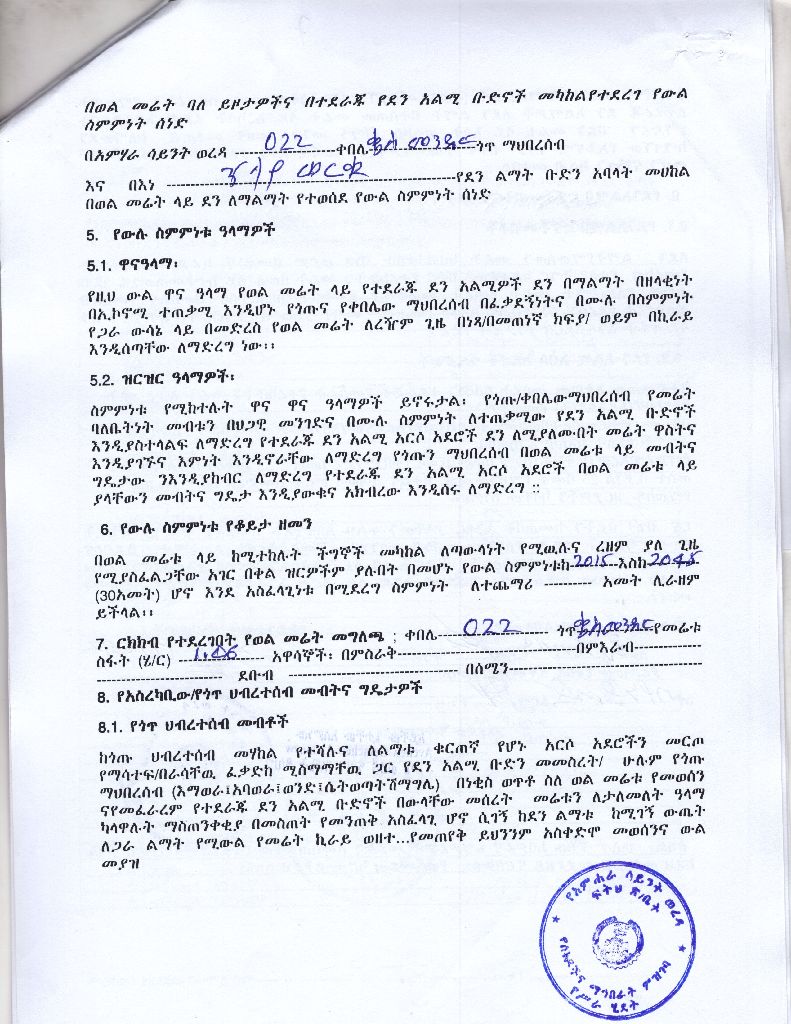 በወል መሬት ባለ ይዞታዎችና በተደራጁ የደን አልሚ ቡድኖች መካከልየተደረገ የውል
ስምምነት ሰነድ
በአምሃራ ሳይንት ወረዳ ---022---ቀበሌ ጎጥ ማህበረሰብ
እና በእነ ---የደን ልማት ቡድን አባላት መሀከል
በወል መሬት ላይ ደን ለማልማት የተወሰደ የውል ስምምነት ሰነድ
5. የውሉ ስምምነቱ ዓላማዎች
5.1. ዋናዓላማ፡
የዚህ ውል ዋና ዓላማ የወል መሬት ላይ የተደራጁ ደን አልሚዎች ደን በማልማት በዘላቂነት
በኢኮኖሚ ተጠቃሚ እንዲሆኑ የጎጡና የቀበሌው ማህበረሰብ በፈቃደኝነትና በሙሉ በስምምነት
የጋራ ውሳኔ ላይ በመድረስ የወል መሬት ለረዥም ጊዜ በነጻ/በመጠነኛ ክፍያ/ ወይም በኪራይ
እንዲሰጣቸው ለማድረግ ነው፡፡
5.2. ዝርዝር ዓላማዎች፡
ስምምነቱ የሚከተሉት ዋና ዋና ዓላማዎች ይኖሩታል፡ የጎጡ/ቀበሌውማህበረሰብ የመሬት
ባለቤትነት መብቱን በህጋዊ መንገድና በሙሉ ስምምነት ለተጠቃሚው የደን አልሚ ቡድኖች
እንዲያስተላልፍ ለማድረግ የተደራጁ ደን አልሚ አርሶ አደሮች ደን ለሚያለሙበት መሬት ዋስትና
እንዲያገኙና እምነት እንዲኖራቸው ለማድረግ የጎጡን ማህበረሰብ በወል መሬቱ ላይ መብትና
ግዴታው ንእንዲያከብር ለማድረግ የተደራጁ ደን አልሚ አርሶ አደሮች በወል መሬቱ ላይ
ያላቸውን መብትና ግዴታ እንዲያውቁና አክብረው እንዲሰሩ ለማድረግ ።
6. የውሉ ስምምነቱ የቆይታ ዘመን
በወል መሬቱ ላይ ከሚተከሉት ችግኞች መካከል ለጣውላነት የሚዉሉና ረዘም ያለ ጊዜ
የሚያስፈልጋቸው አገር በቀል ዝርዎችም ያሉበት በመሆኑ የውል ስምምነቱከ-2015--እስከ-2045
(30አመት) ሆኖ እንደ አስፈላጊነቱ በሚደረግ ስምምነት ለተጨማሪ ---------- አመት ሊራዘም
ይችላል፡፡
7. ርክክብ የተደረገበት የወል መሬት መግለጫ ; ቀበሌ---022--- ጎጥ የመሬቱ
ስፋት (ሄ/ር) --1.46-- አዋሳኞች፡ በምስራቅ---በምእራብ---
--- ደቡብ --- በሰሜን---
8. የአስረካቢው/የጎጥ ህብረተሰብ መብትና ግዴታዎች
8.1. የጎጥ ህብረተሰብ መብቶች
ከጎጡ ህብረተሰብ መሃከል የተሻሉና ለልማቱ ቁርጠኛ የሆኑ አርሶ አደሮችን መርጦ
የማሳተፍ/በራሳቸዉ ፈቃድከ ሚስማማቸዉ ጋር የደን አልሚ ቡድን መመስረት/ ሁሉም የጎጡ
ማህበረሰብ (እማወራ፤አባወራ፤ወንድ፤ሴትወጣትሽማግሌ) በነቂስ ወጥቶ ስለ ወል መሬቱ የመወሰን
ናየመፈራረም የተደራጁ ደን አልሚ ቡድኖች በውላቸው መሰረት መሬቱን ለታለመለት ዓላማ
ካላዋሉት ማስጠንቀቂያ በመስጠት የመንጠቅ አስፈላጊ ሆኖ ሲገኝ ከደን ልማቱ ከሚገኝ ውጤት
ለጋራ ልማት የሚውል የመሬት ኪራይ ወዘተ...የመጠየቅ ይህንንም አስቀድሞ መወሰንና ውል
መያዝ
የአምሐራ ሳይንት ወረዳ
ፍትህ ጽ/ቤት
የሰነዶችና ማኅበራት ምዝገባ
የሥራ ሂደት